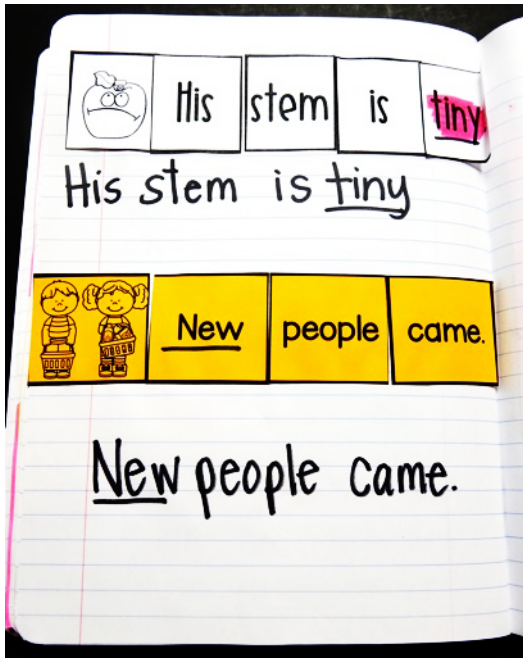 His stem is tiny
His stem is tiny
New people came.
New people came.